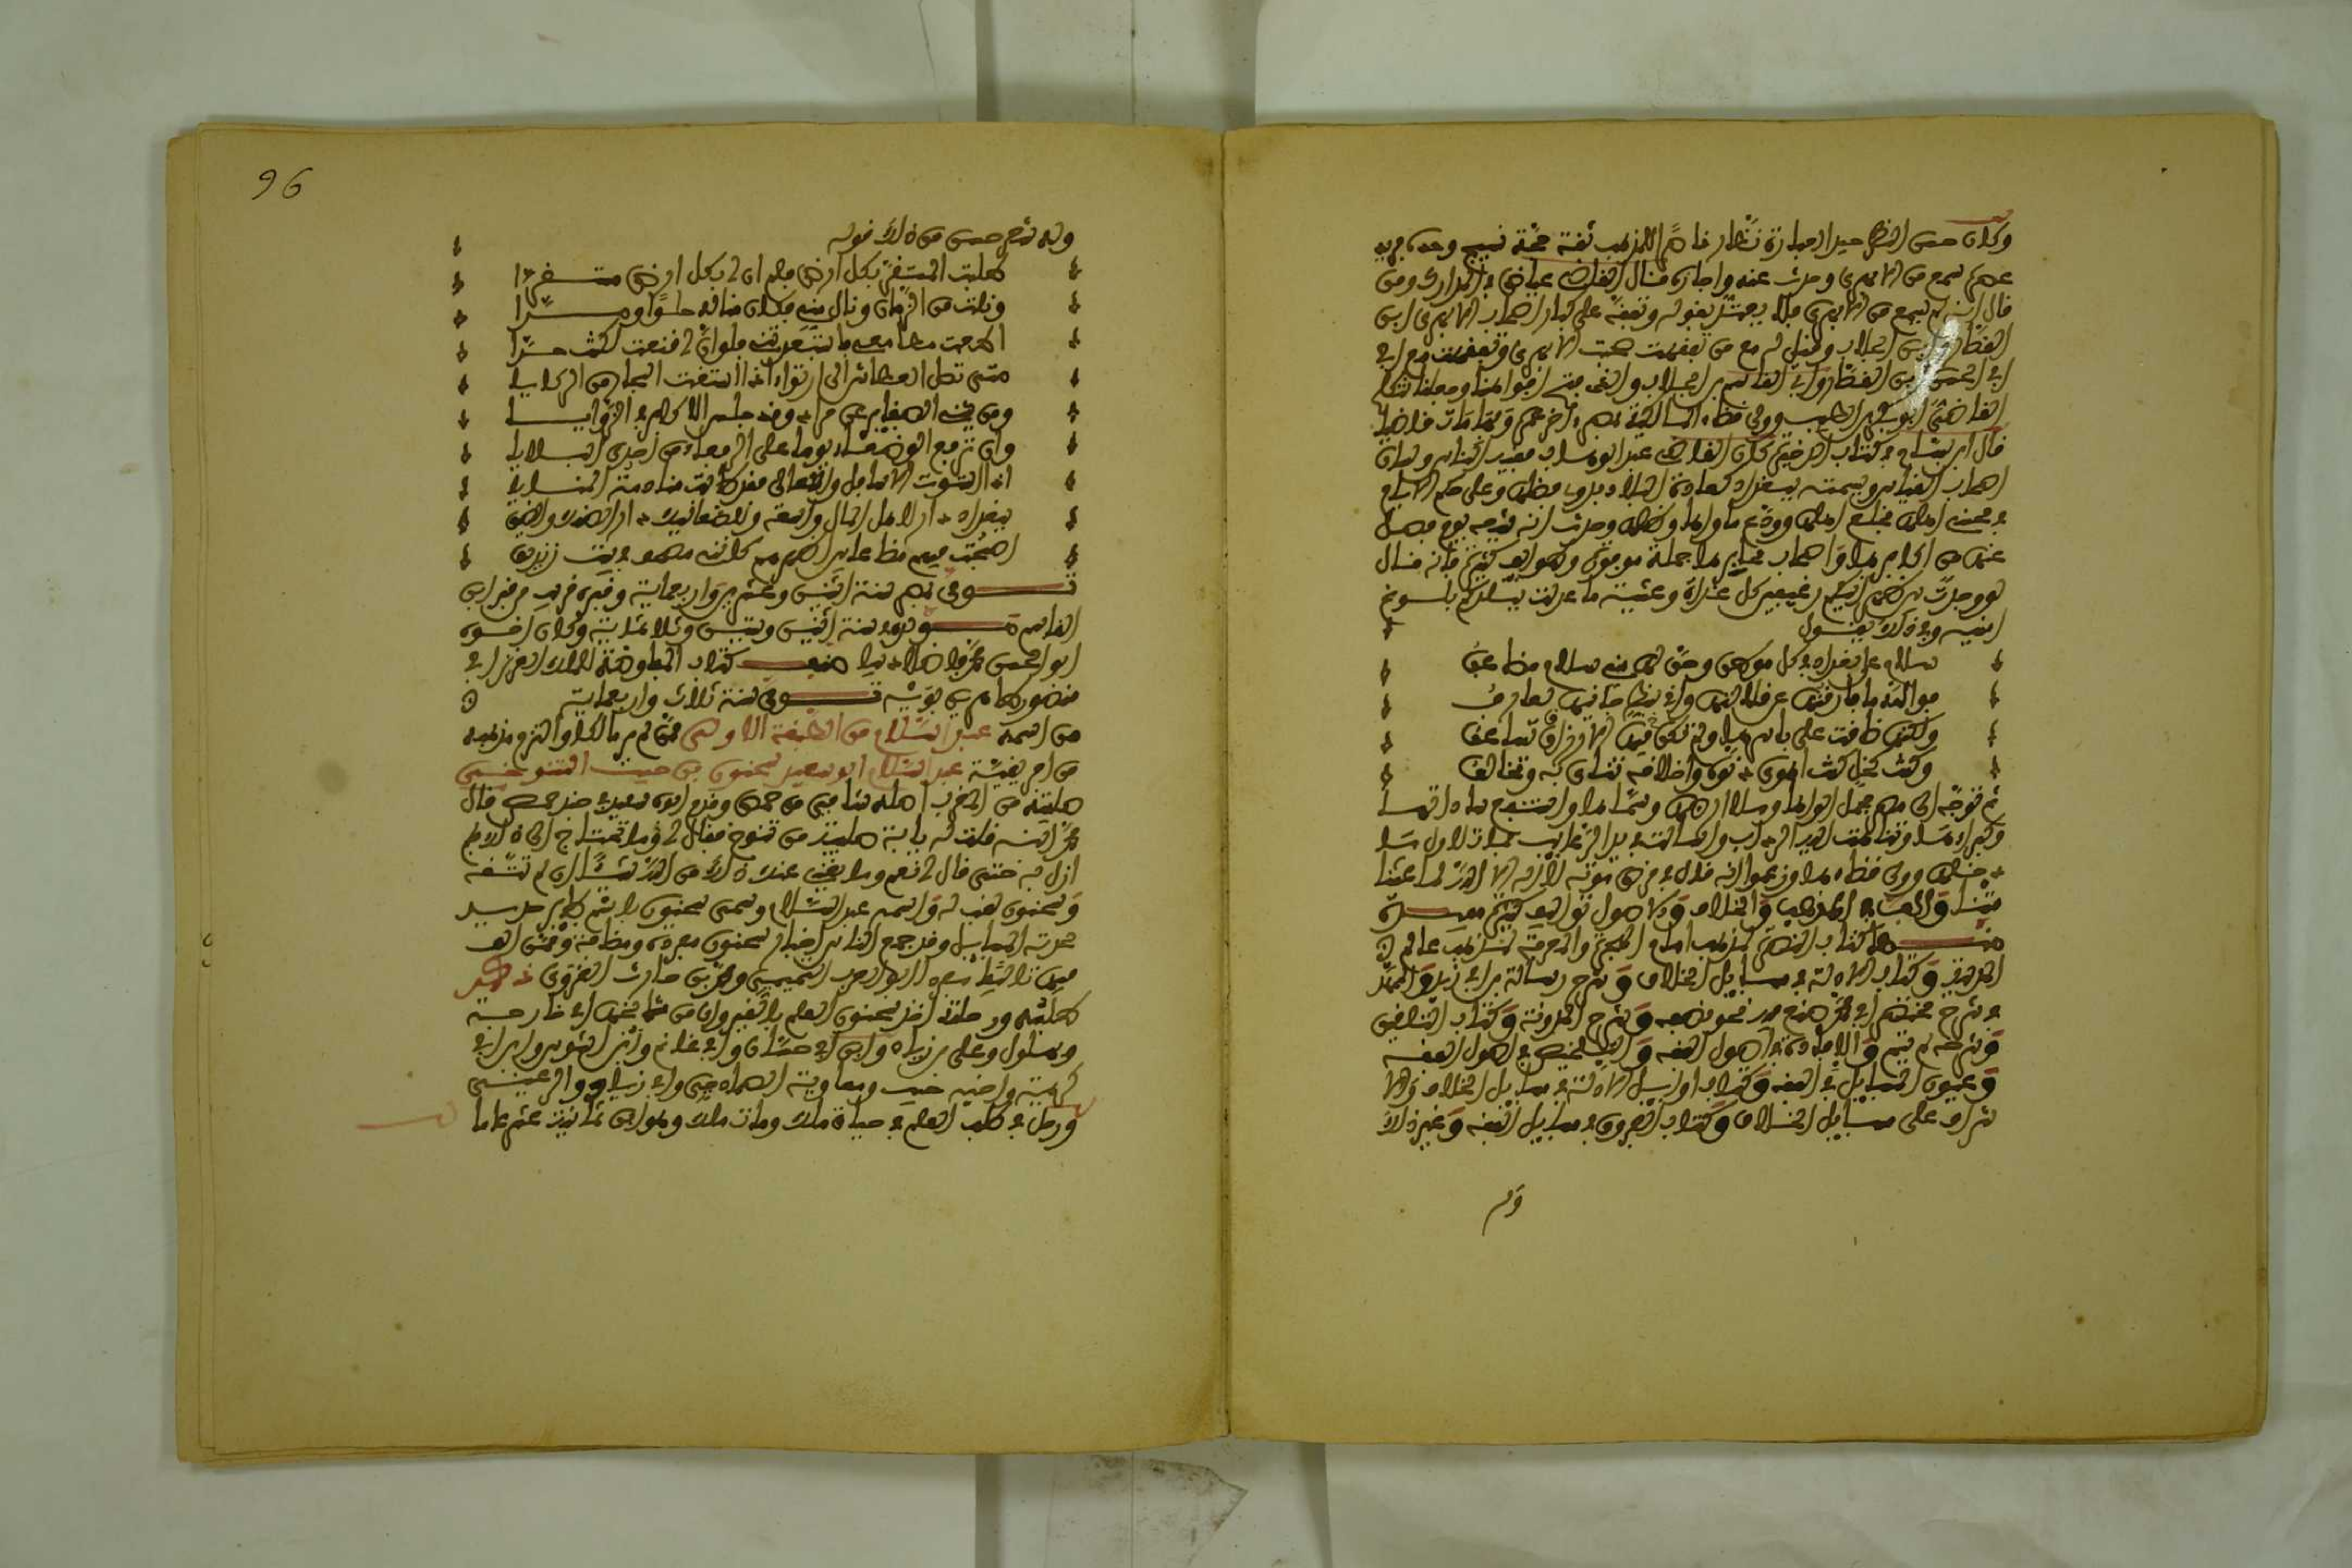 وكان حسن النظر جيد العبارة نظارا ناصرا للمذهب ثقة حجة نسيج وحده فريد
عصره سمع من الابهري وحدث عنه واجازه وقال القاضي عياض في المدارك ومن
قال انه لم يسمع من الابهري فلا يعتد بقوله وتفقه على كبار اصحاب الابهري ابن
القصار وابن الجلاب وقيل له مع من تفقهت قال صحبت الابهري وتفقهت مع ابي
ابي الحسن بن القصار وابي القاسم بن الجلاب والذي فتح افواهنا وجعلنا نتكلم
القاضي ابو بكر بن الطيب وولي قضاء المالكية بمصر اخر عمره وبها مات قاضيا
قال ابن بسام في كتاب الذخيرة كان القاضي عبد الوهاب فقيه الناس ولسان
اصحاب القياس ونبت به بغداد كعادة البلاد بذوي فضلها وعلى حكم الايام
في محسني اهلها فخلع اهلها وودع ماءها وظلها وحدثت انه شيعه يوم فصل
عنها من اكابرها واصحاب محابرها جملة موفورة وطوائف كثيرة وانه قال
لو وجدت بين ظهرانيكم رغيفين كل غداة وعشية ما عدلت ببلدكم بلوغ
امنية وفي ذلك يقول
سلام على بغداد في كل موطن وحق لها مني سلام مضاعف
فوالله ما فارقتها عن قلى لها واني بشطي جانبيها لعارف
ولكنها ضاقت علي باسرها ولم تكن فيها الارزاق تساعف
وكنت كخل كنت اهوى دنوه واخلاقه تنأى به وتخالف
ثم توجه الى مصر فحمل لواءها وملأ ارضها وسماءها واستتبع سادتها
وكبراءها وتناهت اليه الغرائب وانثالت في يديه الرغائب فمات لاول ما
وصلها وولي قضاءها وزعموا انه قال في مرض موته لا اله الا الله لما عشنا
متنا والف في المذهب والخلاف والاصول تواليف كثيرة مفيدة
منها كتاب النصرة لمذهب امام دار الهجرة والمعونة لمذهب عالم
المدينة وكتاب الادلة في مسايل الخلاف وشرح رسالة ابن ابي زيد والممهد
في شرح مختصر ابي محمد صنع منه نحو نصفه وشرح المدونة وكتاب التلقين
وشرحه لم يتم والافادة في اصول الفقه والتلخيص في اصول الفقه
وعيون المسايل في الفقه وكتاب اوايل الادلة في مسايل الخلاف والا
شراف على مسايل الخلاف وكتاب الفروق في مسايل الفقه وغير ذلك
وله
96
وله شعر حسن من ذلك قوله
طلبت المستقر بكل ارض فلم ار لي بكل ارض مستقرا
ونلت من الزمان ونال مني فكان مناله حلوا ومرا
اطعت مطامعي فاستعبدتني فلو اني قنعت لكنت حرا
متى تصل العطاش الى ارتواء اذا استقت البحار من الركايا
ومن يثني الاصاغر عن مراد وقد جلس الاكابر في الزوايا
وان ترفع الوضعاء يوما على الرفعاء من احدى البلايا
اذا استوت الاسافل والاعالي فقد طابت منادمة المنايا
بغداد دار لاهل المال واسعة وللصعاليك دار الضنك والضيق
اصبحت فيهم مضاعا بين اظهرهم كانني مصحف في بيت زنديق
توفي بمصر سنة اثنين وعشرين واربعماية وقبره قريب من قبر ابن
القاسم مولده سنة اثنين وستين وثلاثماية وكان اخوه
ابو الحسن محمد فاضلا اديبا صنف كتاب المفاوضة للملك العزيز ابي
منصور ابن بويه توفي سنة ثلاث واربعماية
من اسمه عبد السلام من الطبقة الاولى ممن لم ير مالكا والتزم مذهبه
من افريقية عبد السلام ابو سعيد سحنون بن سعيد بن حبيب التنوخي
صليبة من العرب اصله شامي من حمص وقدم ابوه سعيد في جند حمص قال
محمد ابنه قلت له يا ابت صليبة من تنوخ فقال لي وما تحتاج الى ذلك فلم
ازل به حتى قال لي نعم وما يغني عنك ذلك من الله شيئا ان لم تتقه
وسحنون لقب له واسمه عبد السلام وسمي سحنون باسم طاير حديد
لحدته في المسايل وقد جمع الناس اخبار سحنون مفردة ومضافة وممن الف
فيها تاليفا مفردا ابو العرب التميمي ومحمد بن حارث القروي ذكر
طلبه ورحلته اخذ سحنون العلم بالقيروان من مشايخها ابي خارجة
وبهلول وعلي بن زياد وابن ابي حسان وابن غانم وابن اشرس وابن ابي
كريمة واخيه حبيب ومعاوية الصمادحي وابي زياد الرعيني
ورحل في طلب العلم في حياة مالك ومات مالك وهو ابن ثمانية عشر عاما